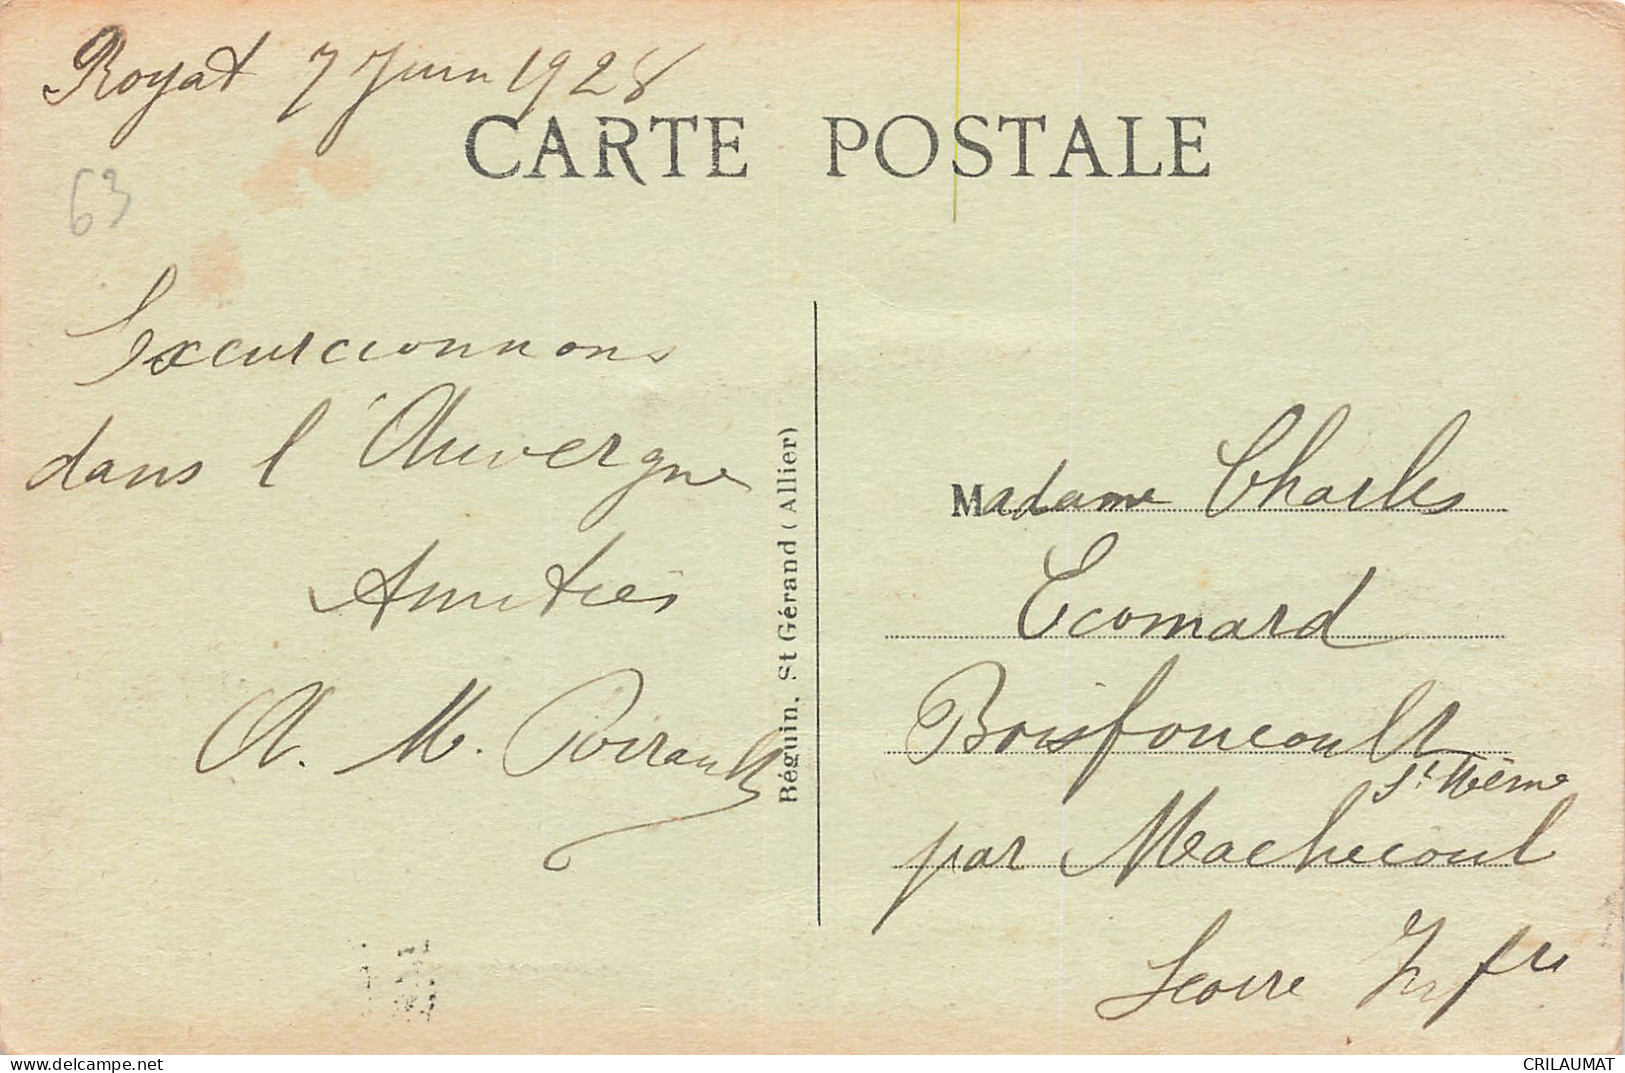 Royat 7 Juin 1928
CARTE POSTALE
63
Excurcionnons
dans l'Auvergne
Amitiés
A. M. Poirault
Béguin, St Gérand (Allier)
Madame Charles
Ecomard
Boisfoucoult
St Même
par Machecoul
Loire Infre
delcampe.net
CRILAUMAT